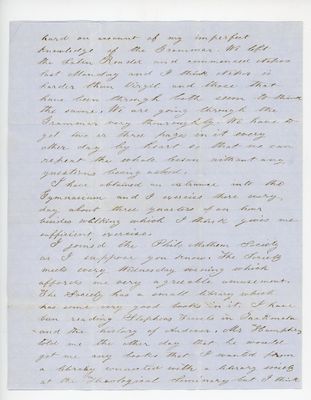 hard on account of my imperfect
knowledge of the Grammar. We left
the Latin Reader and commenced Nepos
last Monday and I think Nepos is
harder than Virgil and those that
have been through both seem to think
the same. We are going through the
Grammar very thoroughly. We have to
get two or three pages in it every
other day by heart so that we can
repeat the whole lesson without any
questions being asked.
I have obtained an entrance into the
Gymnasium and I exercise there every
day about three quarters of an hour
besides walking which I think gives me
sufficient exercise.
I joined the Phil. Mathean Society
as I suppose you know. The Society
meets every Wednesday evening which
affords me very agreeable amusement.
The Society has a small library which
has some very good books in it. I have
been reading Stephens Travels in
and the history of Andover. Mr Humphrey
told me the other day that he would
get me any books that I wanted from
a library connected with a library society
at the Theological Seminary but I think